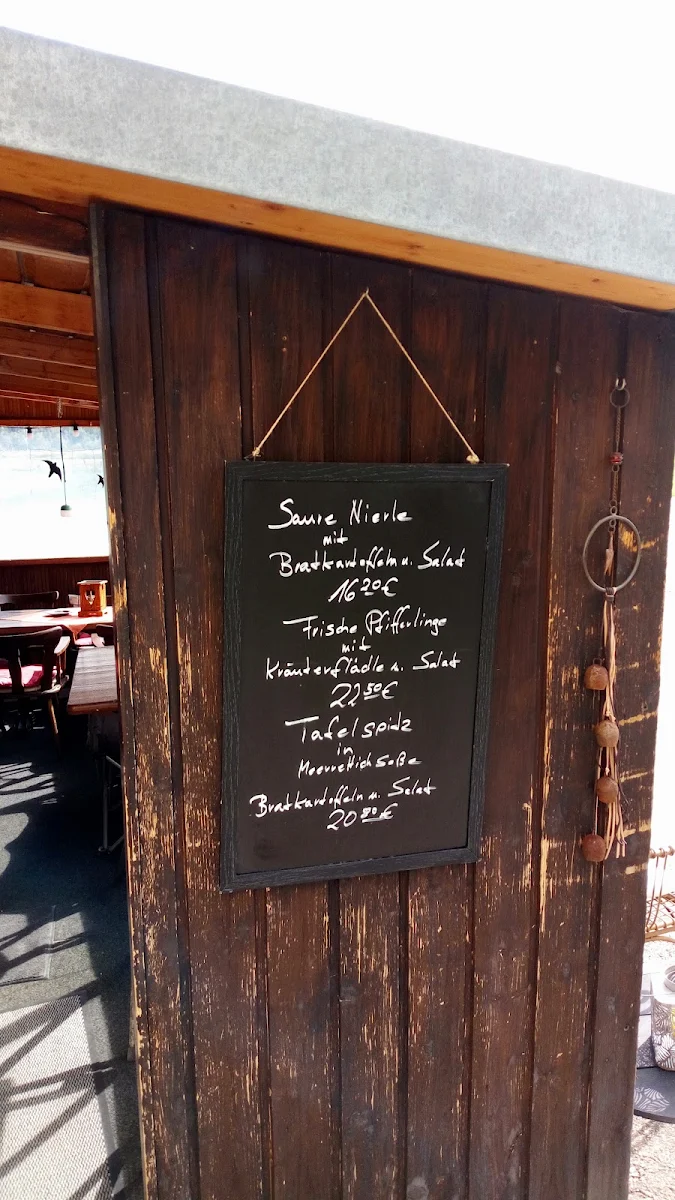 Saure Nierle
mit
Bratkartoffeln u. Salat
16 20 €
Frische Pfifferlinge
mit
Kräuterflädle u. Salat
22 50 €
Tafelspitz
in
Meerrettichsoße
Bratkartoffeln u. Salat
20 80 €